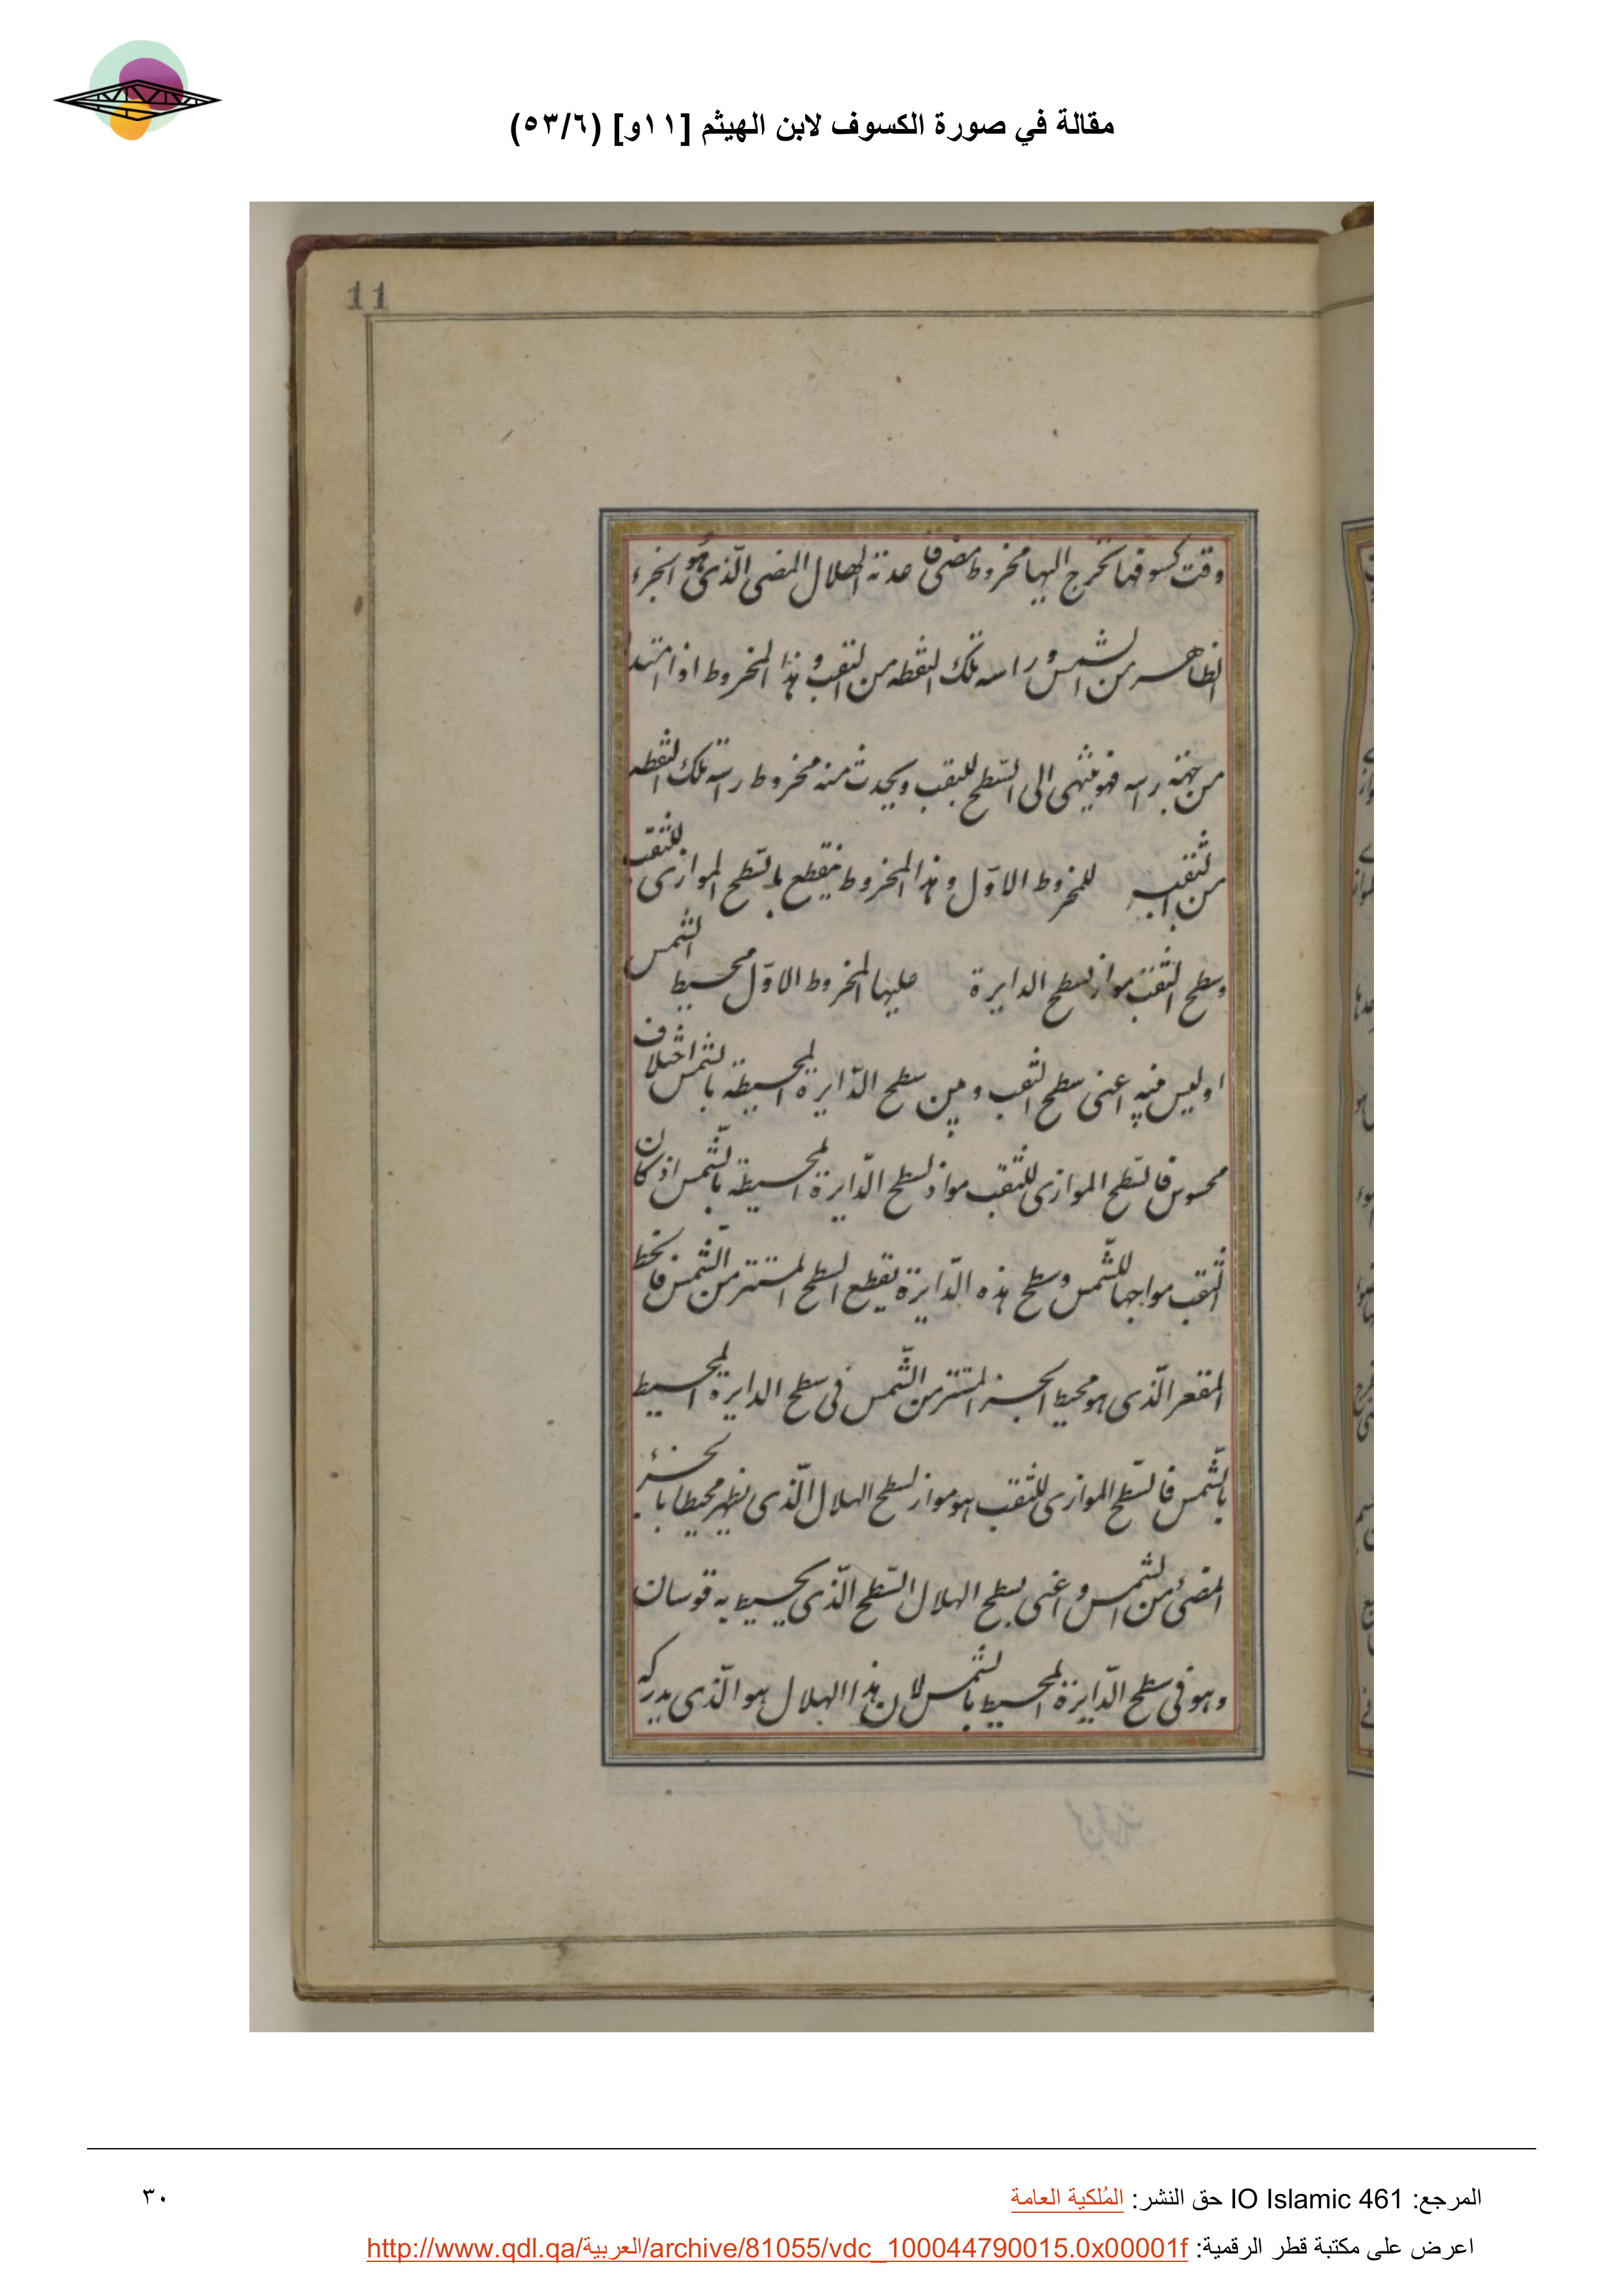 مقالة في صورة الكسوف لابن الهيثم [١١و] (٥٣/٦)
11
وقت كسوفها تخرج اليها مخروط مضئ قاعدته الهلال المضئ الّذى هو الجزء
الظاهر من الشمس وراسه تلك النقطه من الثقب و هذا المخروط اذا امتد
من جهة راسه فهو ينتهى الى السّطح للثقب ويحدث منه مخروط راسه تلك النقطه
من الثقب للمخروط الاوّل و هذا المخروط ينقطع بالسّطح الموازى للثقب
وسطح الثقب مواز لسطح الدايرة عليها المخروط الاوّل محيط الشمس
او ليس فيه اعنى سطح الثقب و بين سطح الدّايرة المحيطة بالشمس اختلاف
محسوس فالسّطح الموازى للثقب مواز لسطح الدّايرة المحيطة بالشّمس اذ كان
الثقب مواجها للشّمس وسطح هذه الدّايرة يقطع السطح المستتر من الشّمس فالخط
المقعر الّذى هو محيط الجزء المستتر من الشّمس فى سطح الدايرة المحيط
بالشّمس فالسّطح الموازى للثقب هو مواز لسطح الهلال الّذى يظهر محيطا بالجزء
المضئ من الشمس و اعنى بسطح الهلال السّطح الّذى يحيط به قوسان
وهو فى سطح الدّايرة المحيط بالشمس لان هذا الهلال هو الّذى يدركه
المرجع: IO Islamic 461 حق النشر: المُلكية العامة
٣٠
اعرض على مكتبة قطر الرقمية: http://www.qdl.qa/العربية/archive/81055/vdc_100044790015.0x00001f